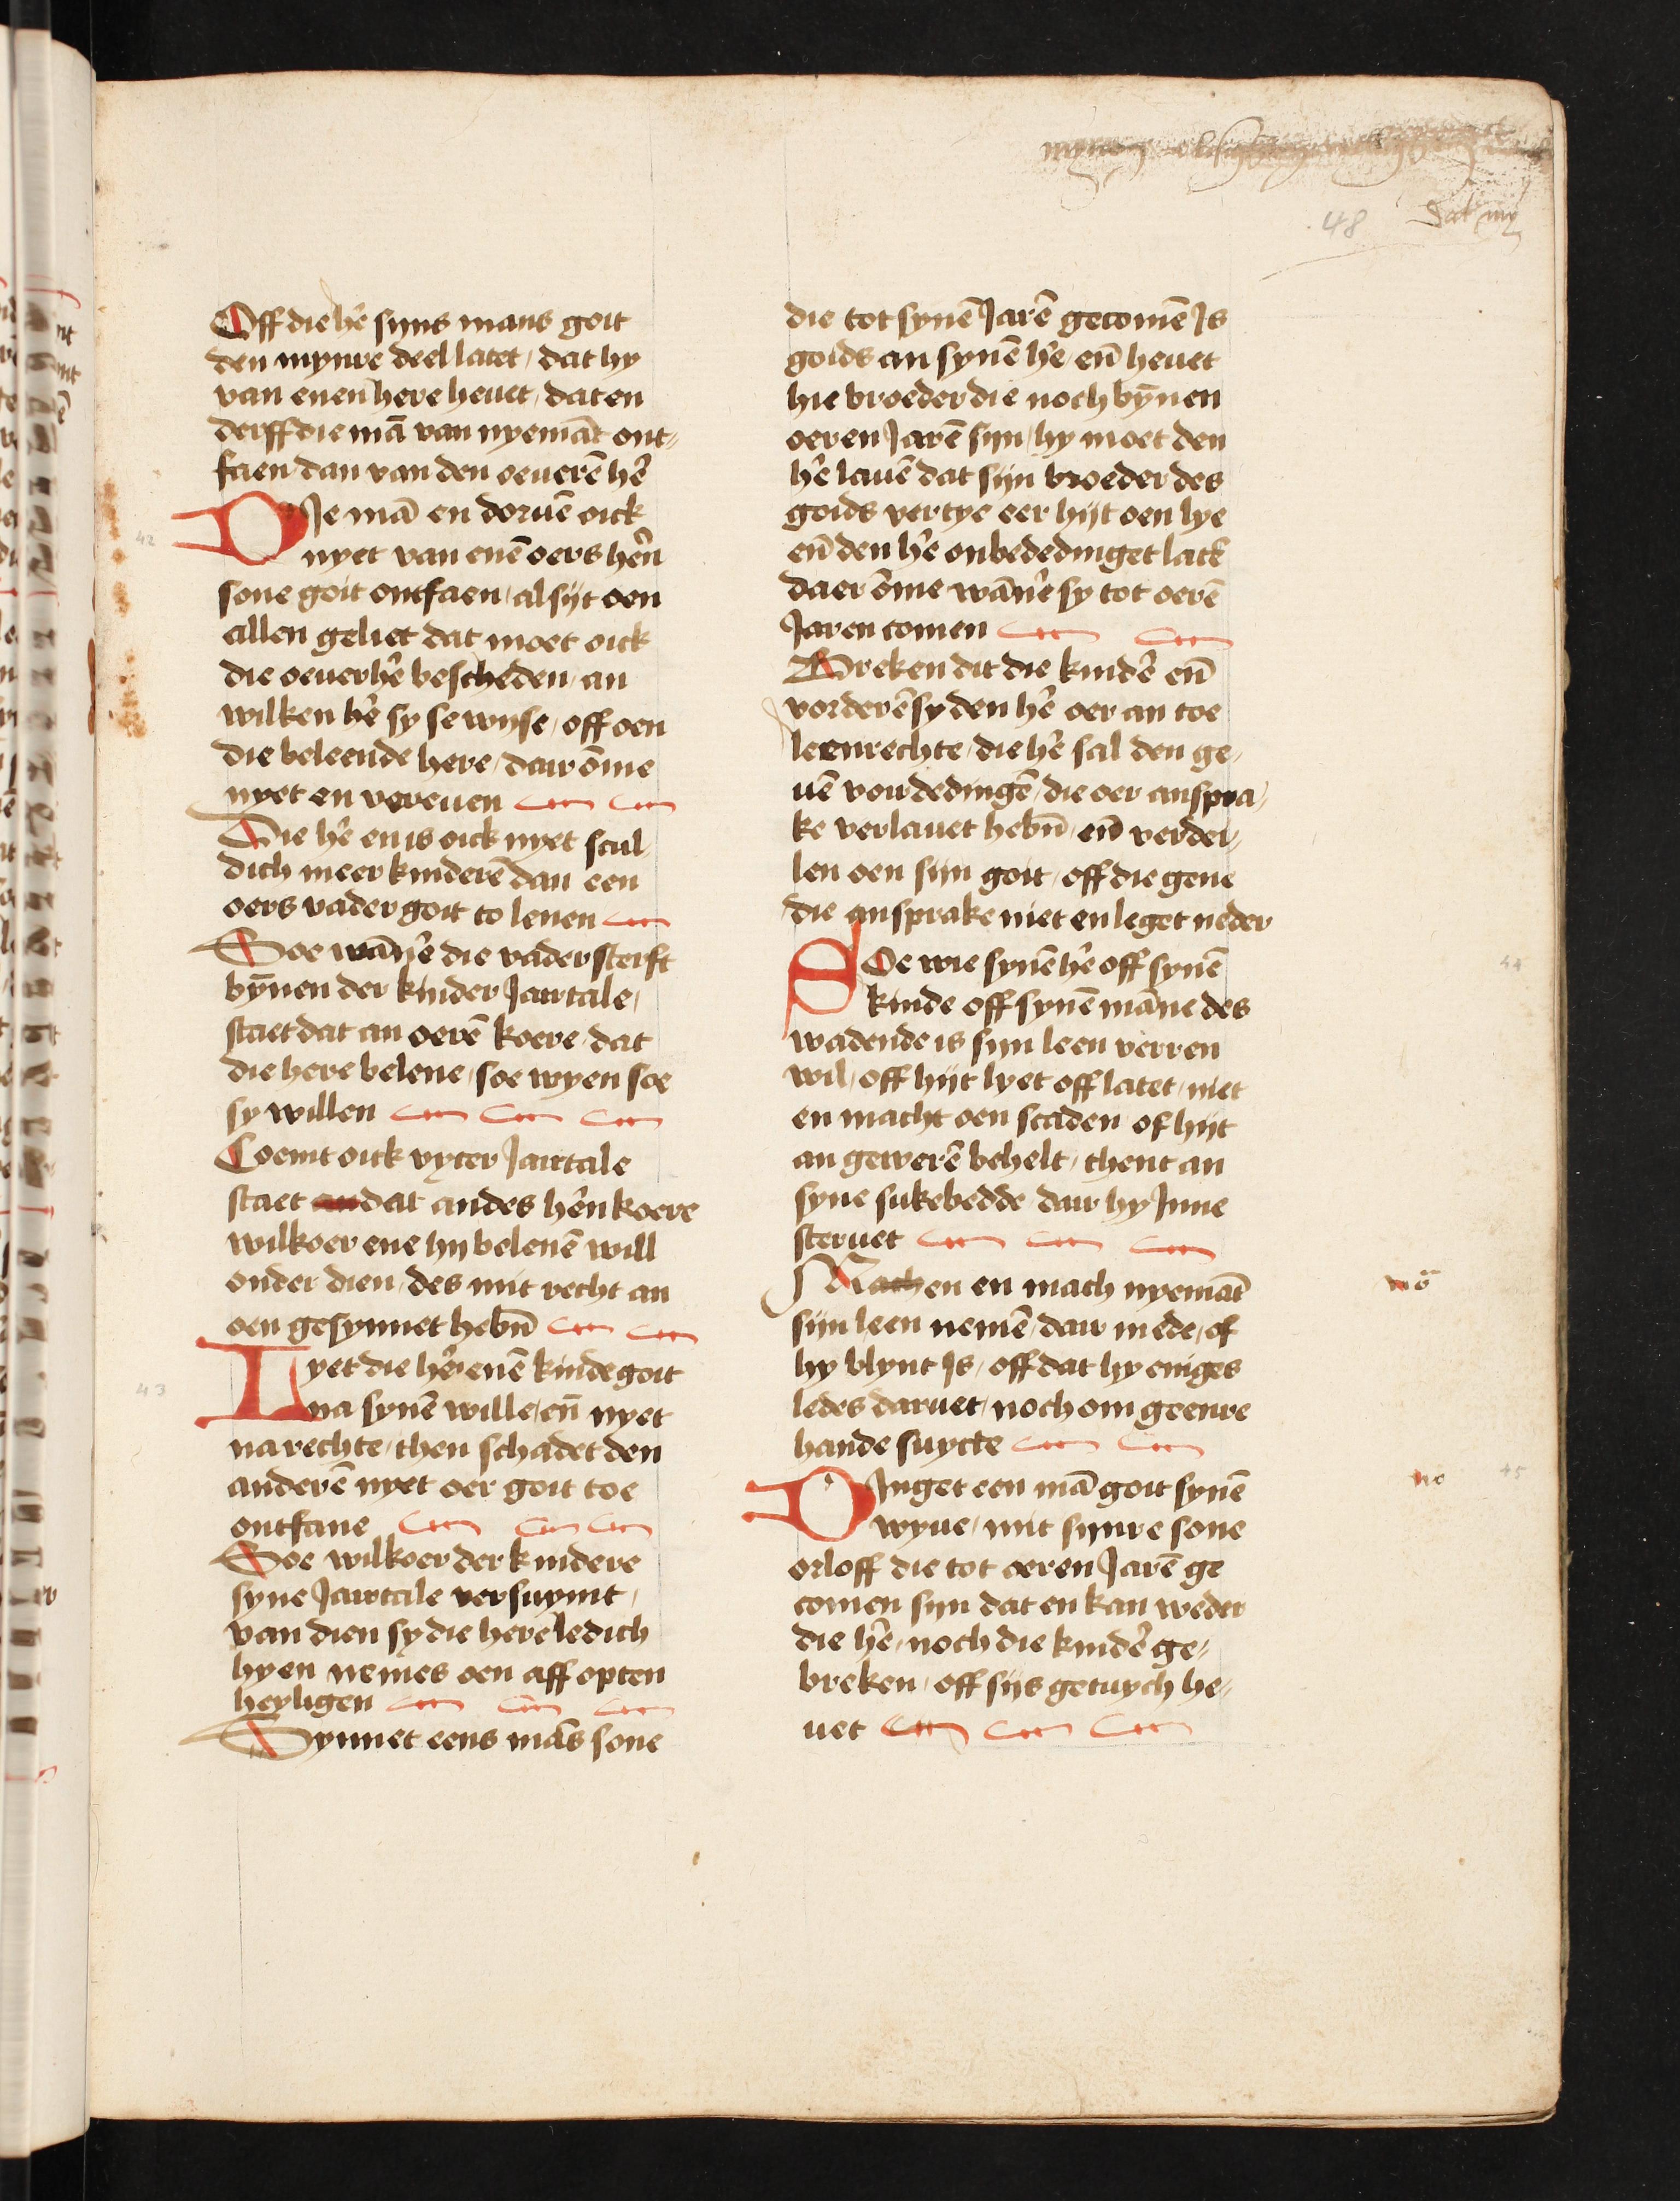 48 dat my
Off die he᷑ sijns mans goit
den mynre deel latet / dat hy
van enen here heuet / dat en
derff die mā van nyemāt ont⸗
faen dan van den oeuerē he᷑
DJe mā en doruē oick
nyet van enē oers he᷑n
sone goit ontfaen / al sijt oen
allen geliet dat moet oick
die oeuerhe᷑ bescheden / an
wilken he᷑ sy se wyse / off oen
die beleende here / dair ōme
nyet en vereuen
Die he᷑ en is oick nyet scul
dich meer kinderē dan een
oers vader goit to lenen
Soe wāne᷑ die vader sterft
by̅nen der kinder Jairtale /
staet dat an oerē koere / dat
die here belene / soe wyen soe
sy willen
Coemt oick vyter Jairtale
staet an dat an des he᷑n koere
wilkoer ene hij belenē will
onder dien / des mit recht an
oen gesynnet hebn̄
Lyet die he᷑ enē kinde goit
na synē wille / en̄ nyet
na rechte / then schadet den
anderē nyet oer goit toe
ontfane
Soe wilkoer der kindere
syne Jairtale versuymt /
van dien sy die here ledich
hy en nemes oen aff opten
heyligen
Synnet eens mās sone
die tot synē Jarē gecomē Js
goids an synē he᷑ / en̄ heuet
hie broeder die noch by̅nen
oeren Jarē sijn / hy moet den
he᷑ lauē dat sijn broeder des
goids vertye eer hijt oen lye
en̄ den he᷑ onbededinget laet
daer ōme wāne᷑ sy tot oerē
Jaren comen
Breken dit die kinde᷑ en̄
vorderē sy den he᷑ oer an toe
leenrechte / die he᷑ sal den ge⸗
uē vordedingē / die oer anspra⸗
ke verlauet hebn̄ / en̄ verdei⸗
len oen sijn goit / off die gene
die ansprake niet en leget neder
SOe wie synē he᷑ off synē
kinde off synē māne des
wadende is sijn leen verren
wil / off hijt lyet off latet / niet
en macht oen scaden of hijt
an gewerē behelt / thent an
syne sukebedde dair hy Jnne
steruet
Machen en mach nyemāt
sijn leen nemē / dair mede / of
hy blynt Js / off dat hy eniges
ledes daruet / noch om geenre
hande suycte
DJnget een mā goit synē
wyue / mit sijnre sone
orloff die tot oeren Jarē ge
comen sijn dat en kan weder
die he᷑ / noch die kinde᷑ ge⸗
breken / off sijs getuych he⸗
uet
42
43
44
nō
no 45